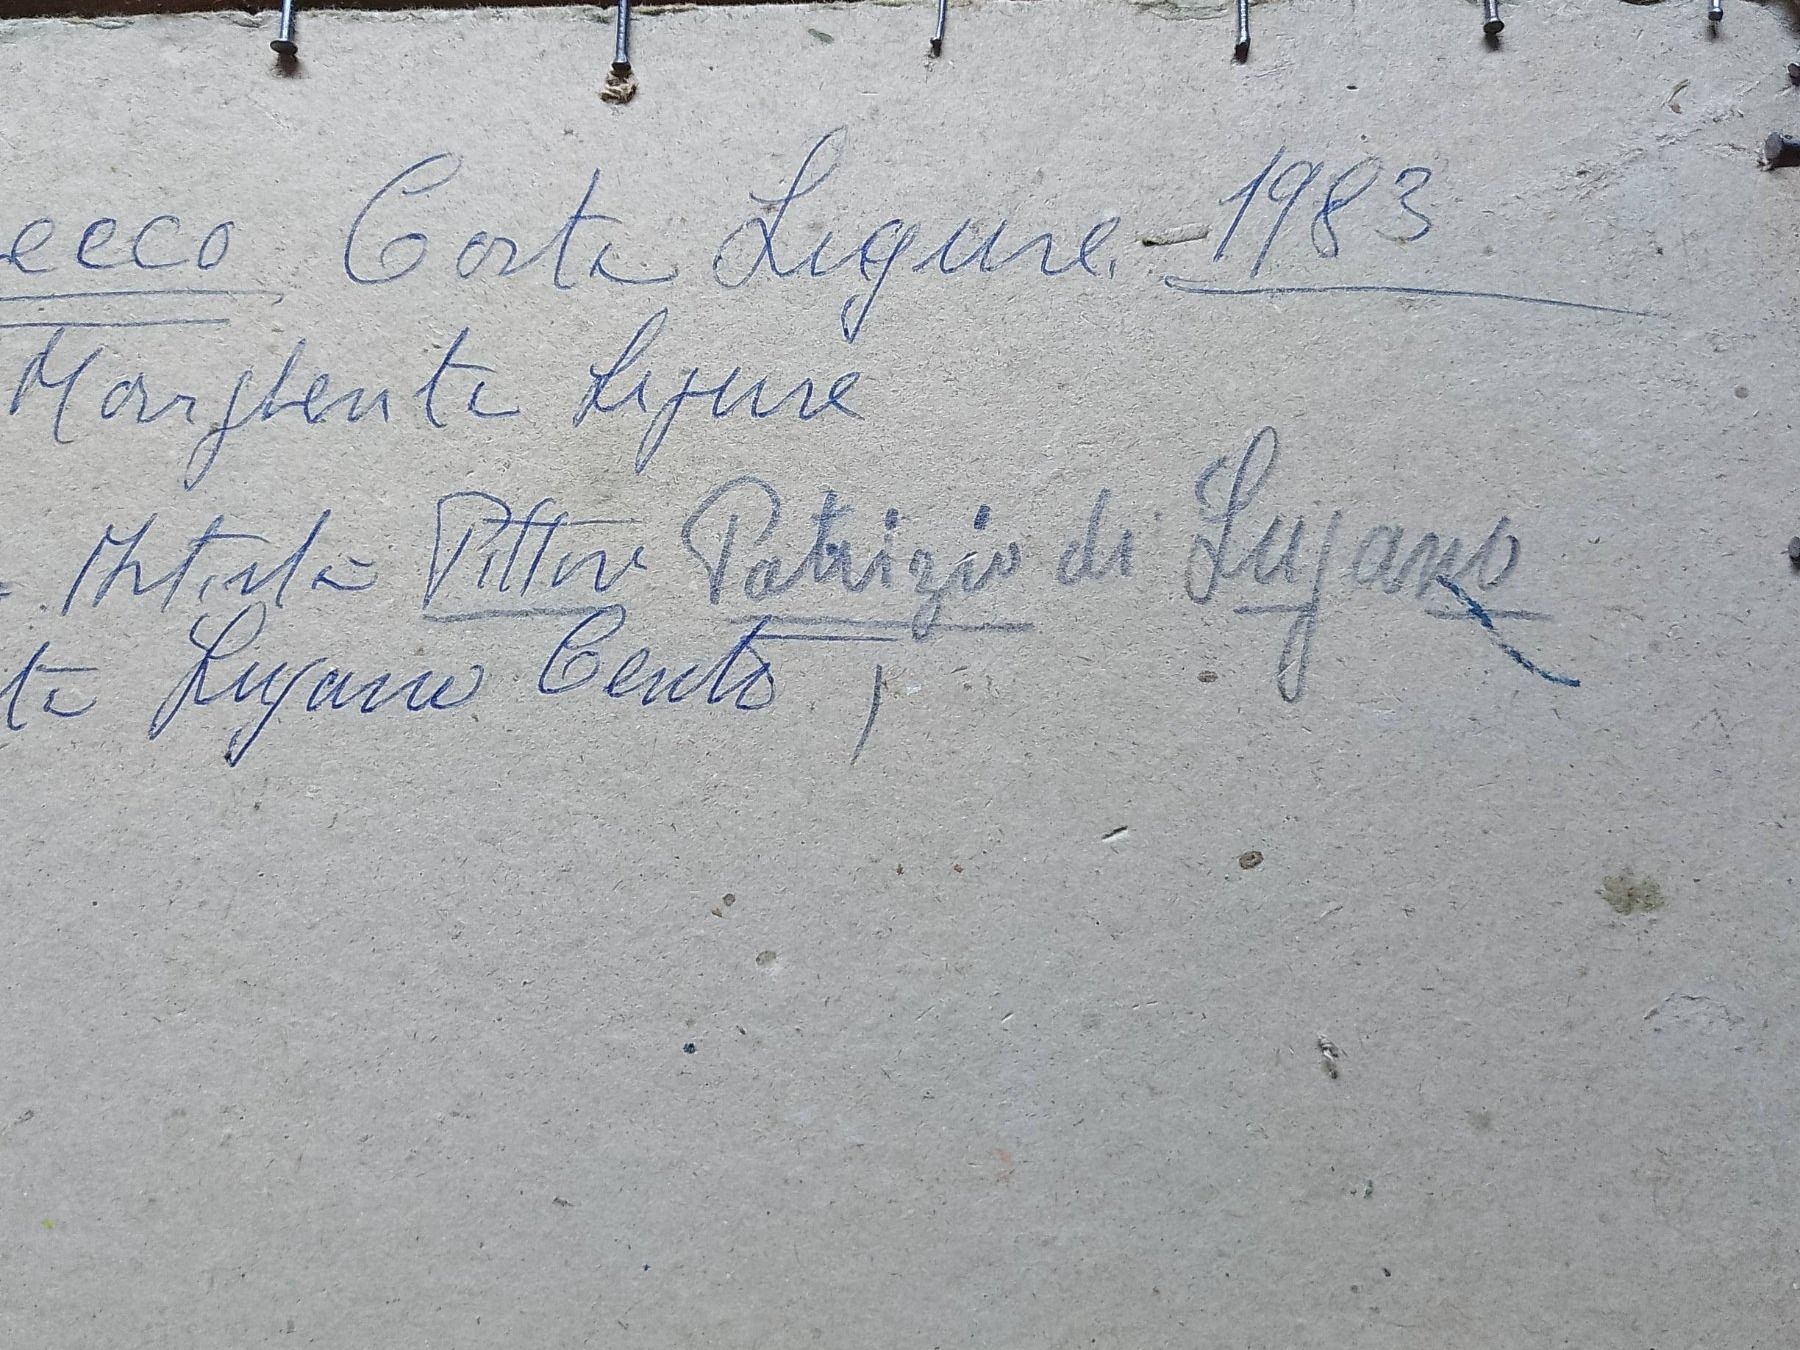 eeco Costa Ligure. - 1983
Margherita Ligure
Artista Pittore Patrizio di Lugano
ta Lugano Cento